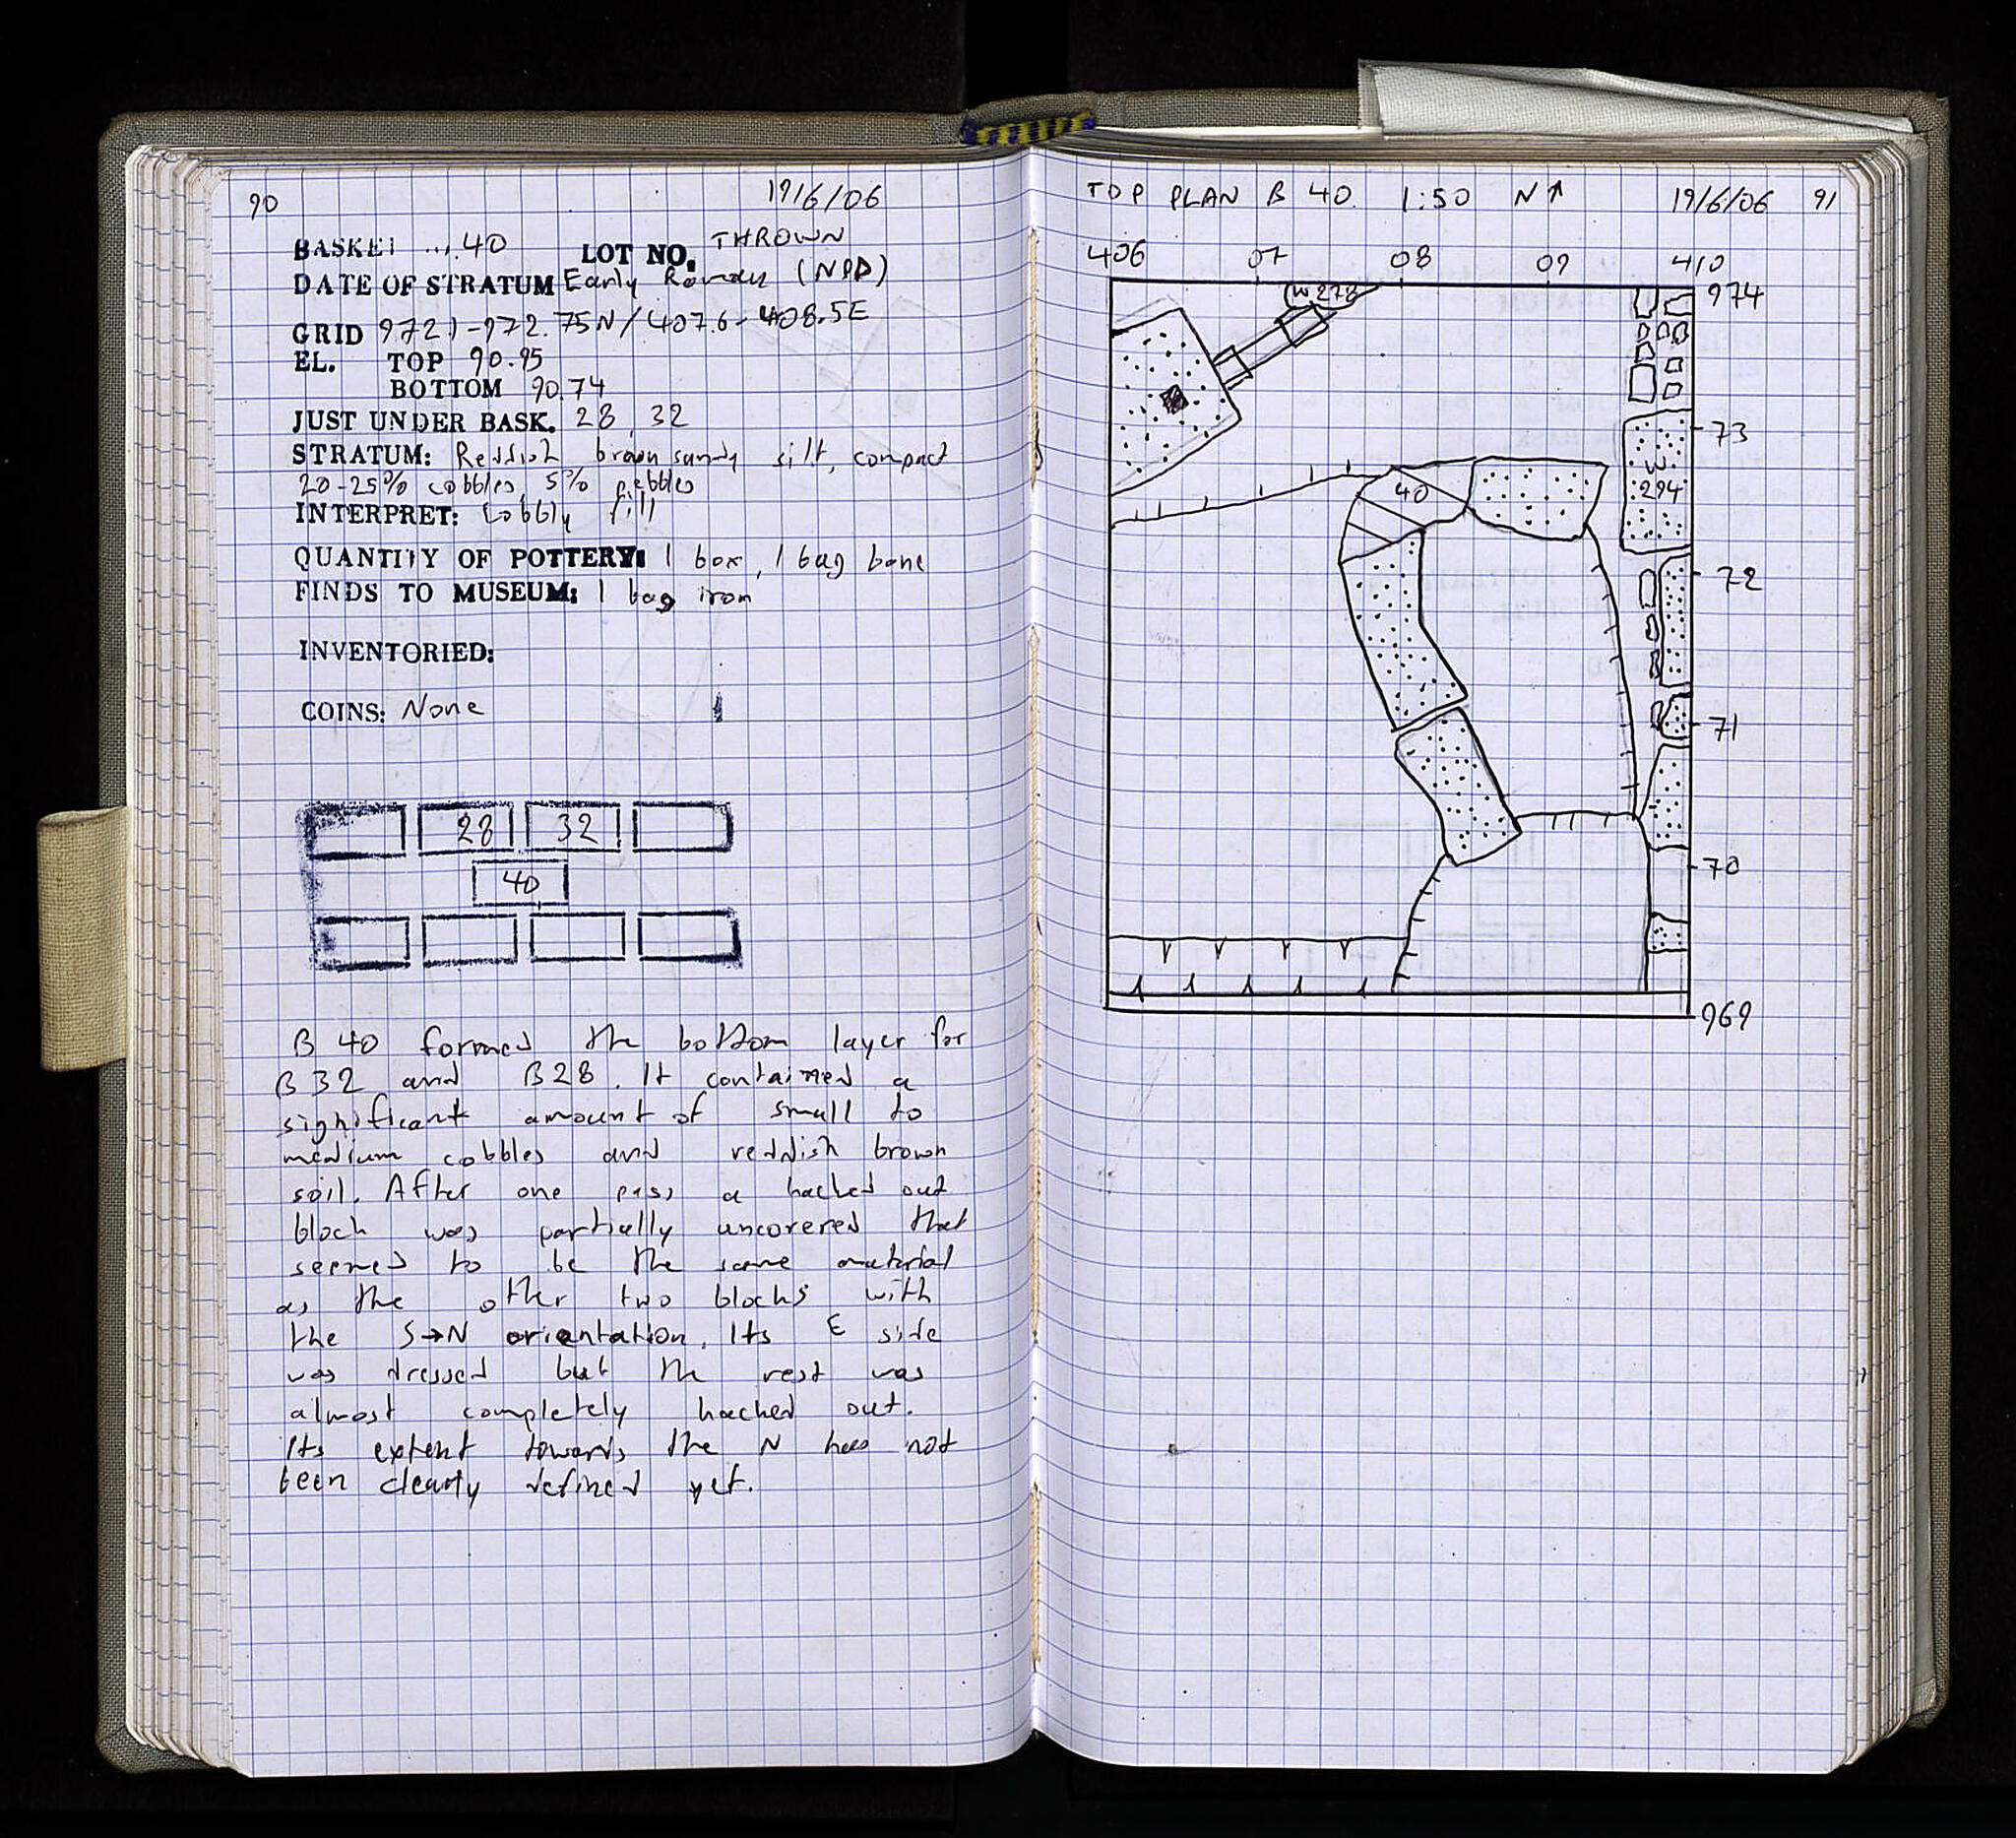 90
19/6/06
BASKET ... 40 LOT NO. THROWN
DATE OF STRATUM Early Roman (NPD)
GRID 972.1-972.75N/407.6-408.5E
EL. TOP 90.95
BOTTOM 90.74
JUST UNDER BASK. 28, 32
STRATUM: Reddish brown sandy silt, compact
20-25% cobbles, 5% pebbles
INTERPRET: Cobbly fill
QUANTITY OF POTTERY: 1 box, 1 bag bone
FINDS TO MUSEUM: 1 bag iron
INVENTORIED:
COINS: None
28 32
40
B 40 formed the bottom layer for
B32 and B28. It contained a
significant amount of small to
medium cobbles and reddish brown
soil. After one pass a hacked out
block was partially uncovered that
seemed to be the same material
as the other two blocks with
the S→N orientation. Its E side
was dressed but the rest was
almost completely hacked out.
Its extent towards the N has not
been clearly defined yet.
TOP PLAN B 40 1:50 N↑ 19/6/06 91
406 07 08 09 410
W278
974
73
W
294
40
72
71
70
969